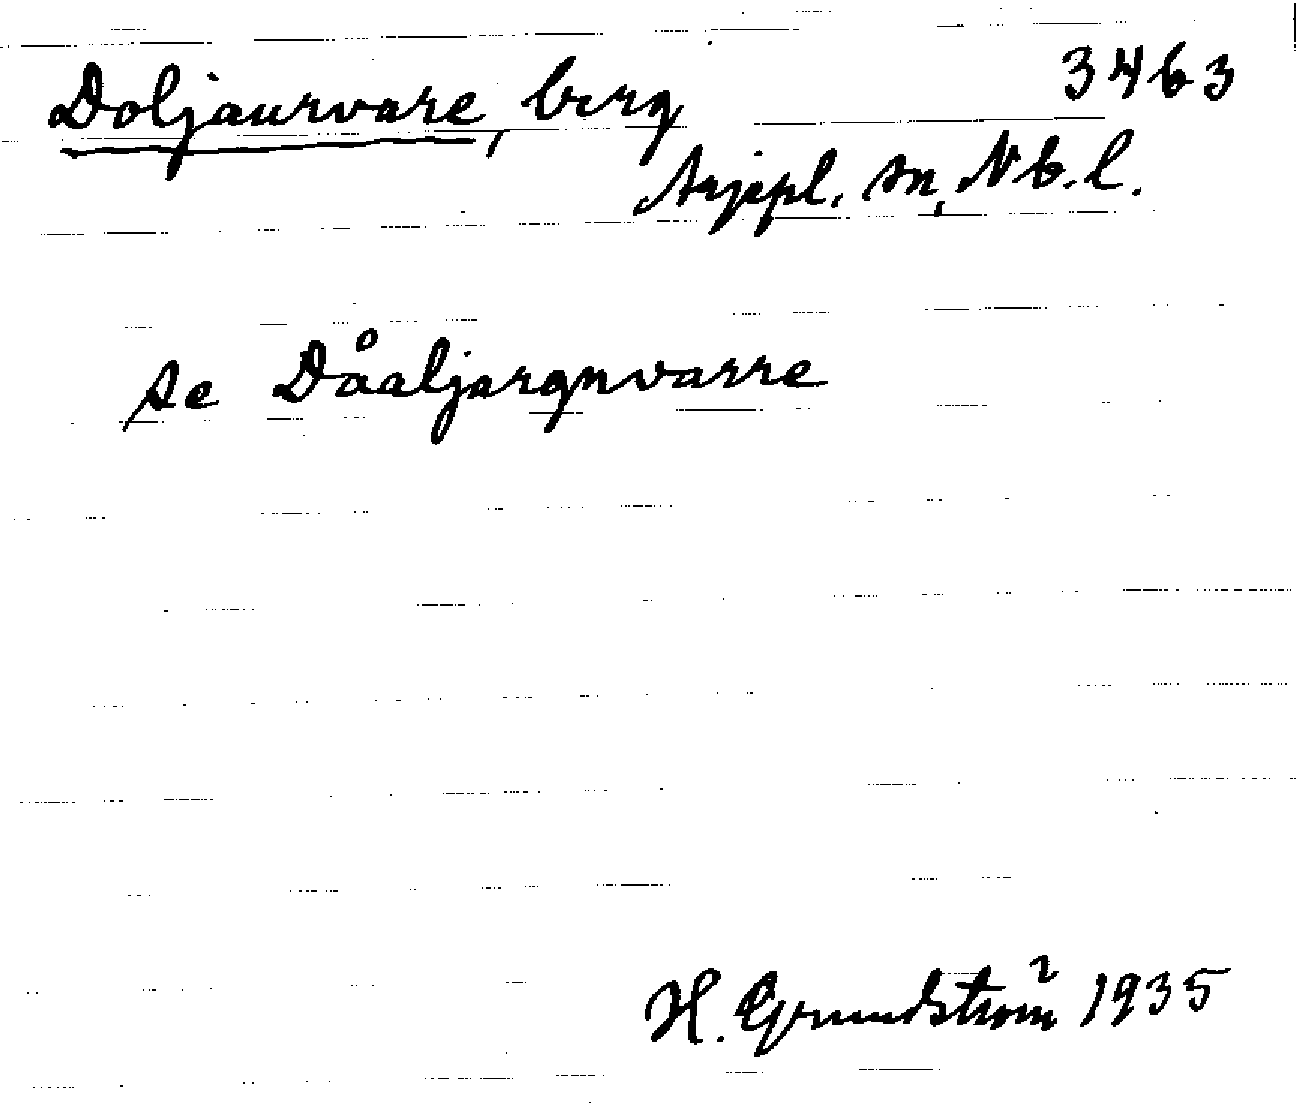 Doljaurvare, berg 3463
Arjepl. sn, Nb.l.
se Dåaljargnvarre
H. Grundström 1935